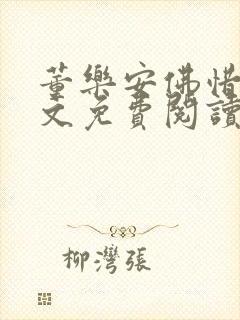 董樂安佛惜
文免費閱讀
柳灣張